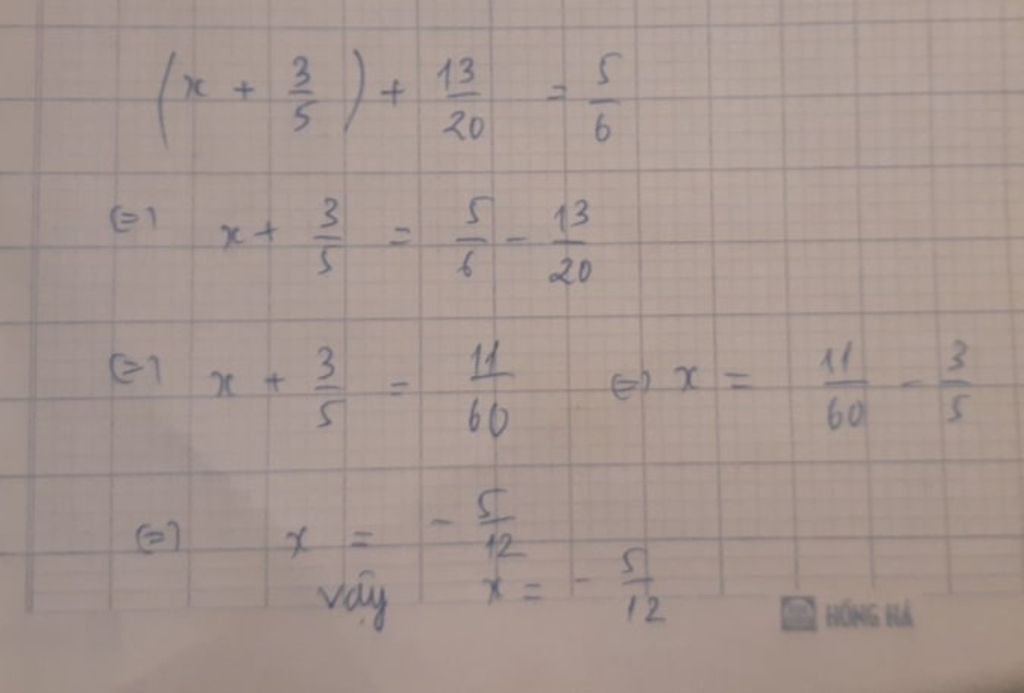 (x + 3/5) + 13/20 = 5/6
⇔ x + 3/5 = 5/6 - 13/20
⇔ x + 3/5 = 11/60 ⇔ x = 11/60 - 3/5
⇔ x = - 5/12
vậy x = - 5/12
HỒNG HÀ